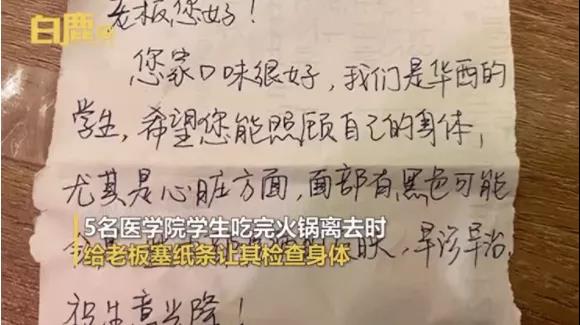 白鹿
老板您好！
您家口味很好，我们是华西的
学生，希望您能照顾自己的身体，
尤其是心脏方面，面部有黑色可能
5名医学院学生吃完火锅离去时
给老板塞纸条让其检查身体
肤，早诊早治，
祝生意兴隆！